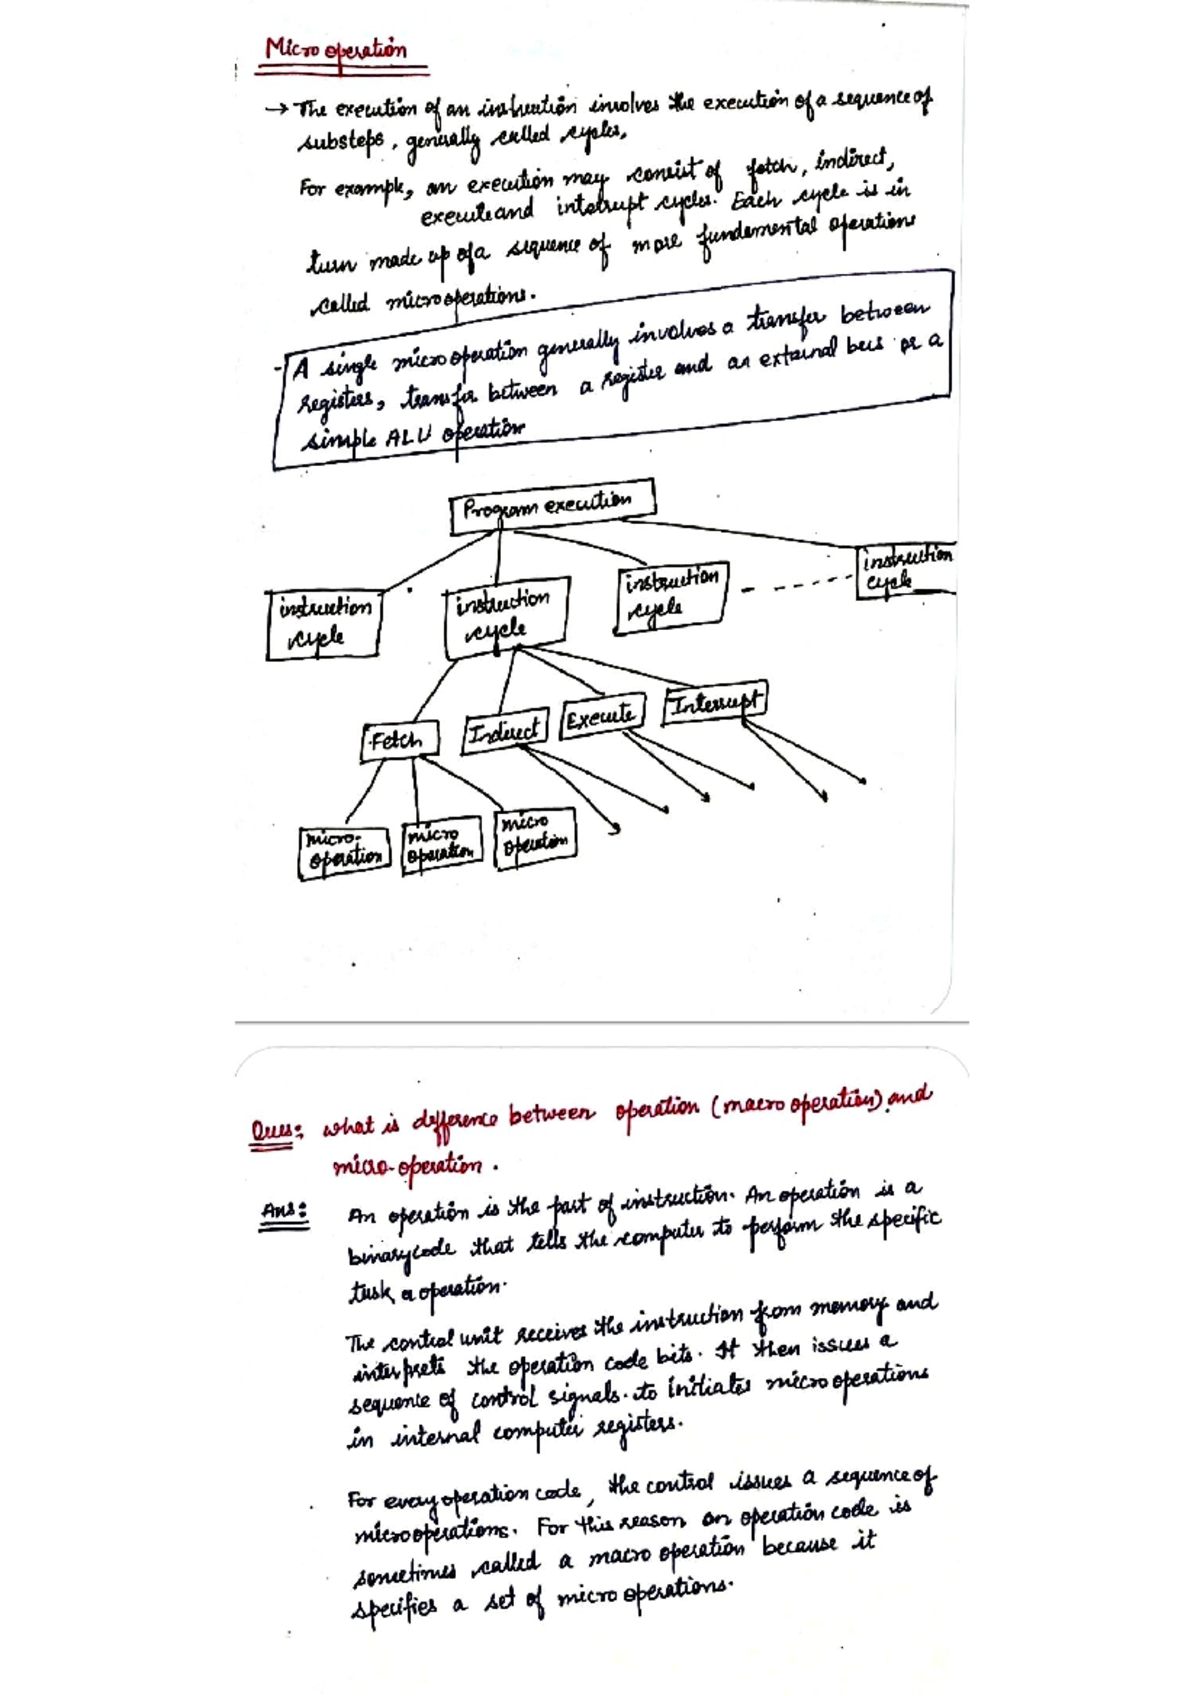 Micro operation
→ The execution of an instruction involves the execution of a sequence of
substeps, generally called cycles,
For example, an execution may consist of fetch, indirect,
execute and interrupt cycles. Each cycle is in
turn made up of a sequence of more fundamental operations
called micro operations.
- A single micro operation generally involves a transfer between
registers, transfer between a register and an external bus or a
simple ALU operation
Program execution
instruction
cycle
instruction
cycle
instruction
cycle
instruction
cycle
Fetch
Indirect
Execute
Interrupt
micro-
operation
micro
operation
micro
operation
Ques: what is difference between operation (macro operation) and
micro-operation.
Ans: An operation is the part of instruction. An operation is a
binary code that tells the computer to perform the specific
task a operation.
The control unit receives the instruction from memory and
interprets the operation code bits. It then issues a
sequence of control signals. to initiates micro operations
in internal computer registers.
For every operation code, the control issues a sequence of
micro operations. For this reason an operation code is
sometimes called a macro operation because it
specifies a set of micro operations.